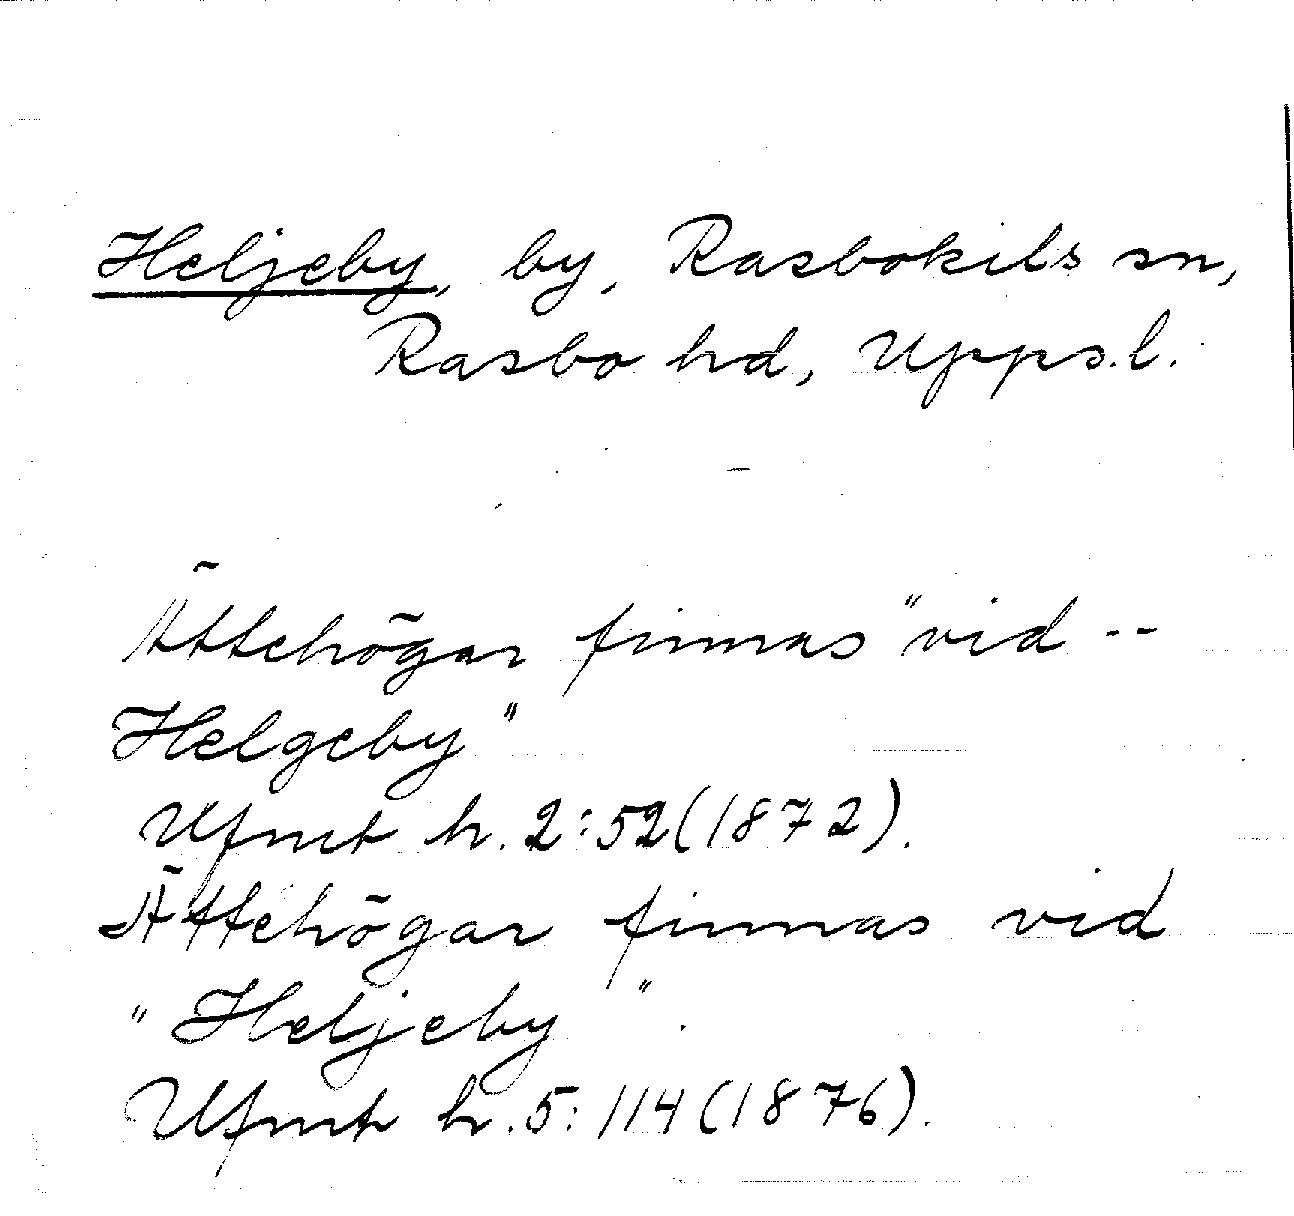 Heljeby, by, Rasbokils sn,
Rasbo hd, Upps.l.
Ättehögar finnas "vid --
Helgeby"
Ufmt h. 2:52(1872).
Ättehögar finnas vid
"Heljeby".
Ufmt h.5:114(1876).